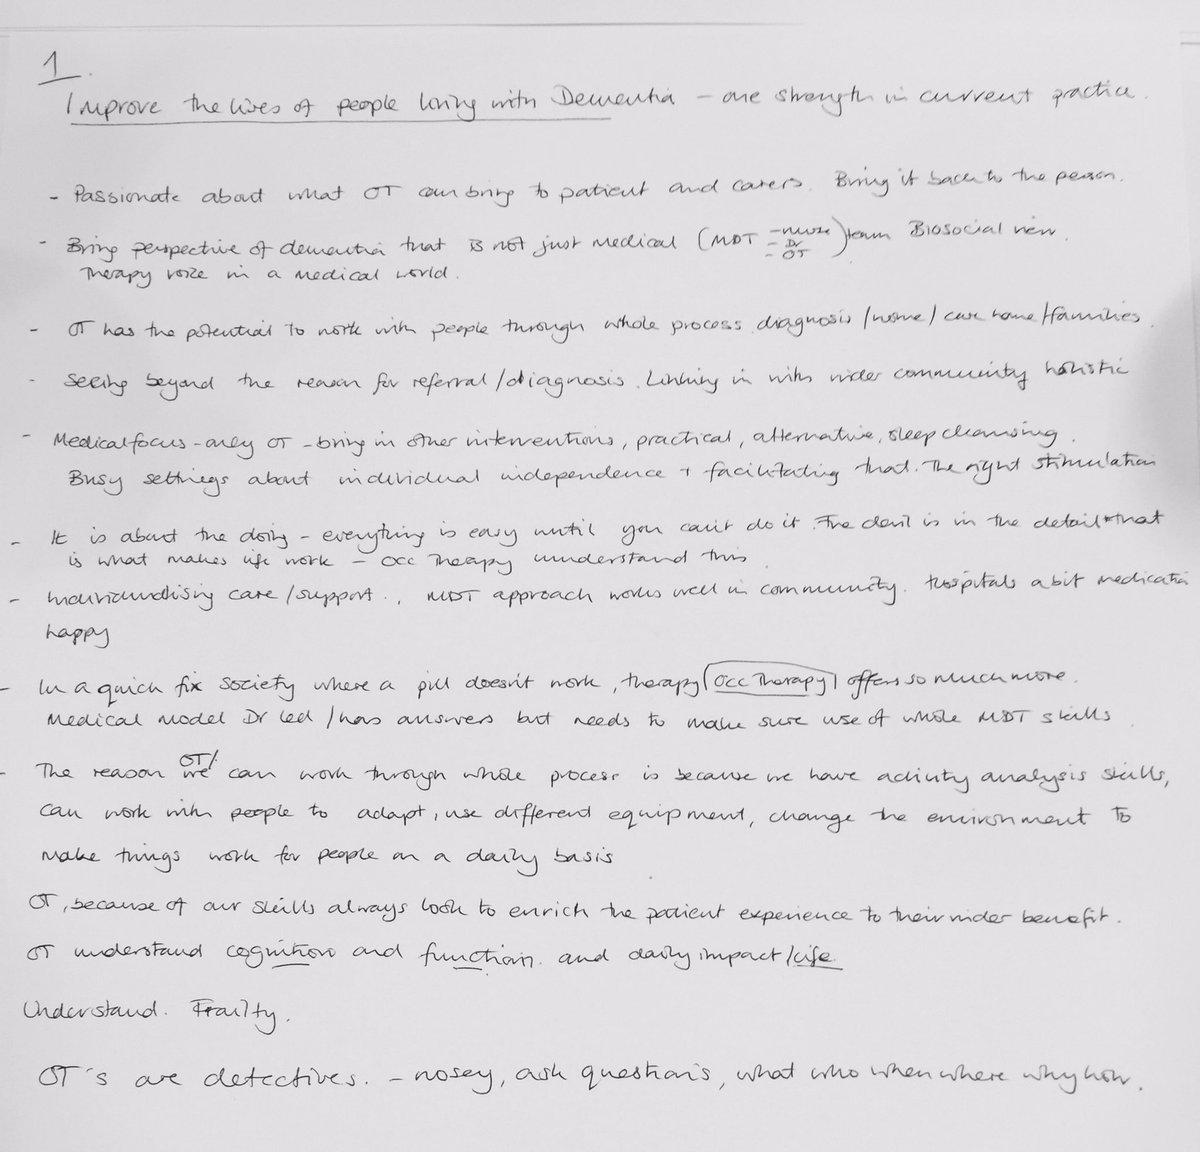 1.
Improve the lives of people living with Dementia - one strength in current practice.
- Passionate about what OT can bring to patient and carers. Bring it back to the person.
- Bring perspective of dementia that is not just medical (MDT - nurse - Dr - OT) team Biosocial view.
Therapy voice in a medical world.
- OT has the potential to work with people through whole process diagnosis /home/ care home/families.
- Seeing beyond the reason for referral/diagnosis. Linking in with wider community holistic
- Medical focus - only OT - bring in other interventions, practical, alternative, sleep cleansing.
Busy settings about individual independence + facilitating that. The right stimulation
- It is about the doing - everything is easy until you can't do it. The devil is in the detail + that
is what makes life work - Occ Therapy understand this.
- Individualising care/support., MDT approach works well in community. Hospitals a bit medication
happy
- In a quick fix society where a pill doesn't work, therapy (Occ Therapy) offers so much more.
Medical model Dr led /has answers but needs to make sure use of whole MDT skills
- The reason OT/ we can work through whole process is because we have activity analysis skills,
can work with people to adapt, use different equipment, change the environment to
make things work for people on a daily basis
OT, because of our skills always look to enrich the patient experience to their wider benefit.
OT understand cognition and function. and daily impact/life
Understand. Frailty.
OT's are detectives. - nosey, ask questions, what who when where why how.